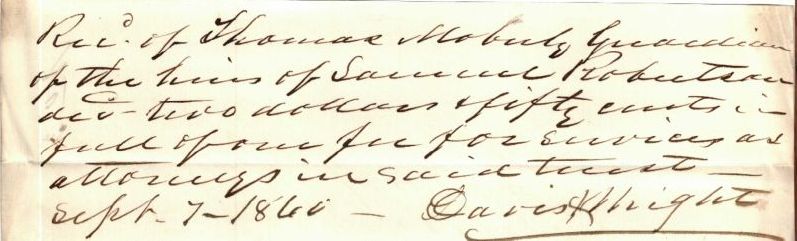 Recd. of Thomas Moberly Guardian
of the heirs of Samuel Robertson
decd two dollars & fifty cents in
full of our fee for services as
attorneys in said trust —
Sept. 7 – 1860 — Davis & Wright